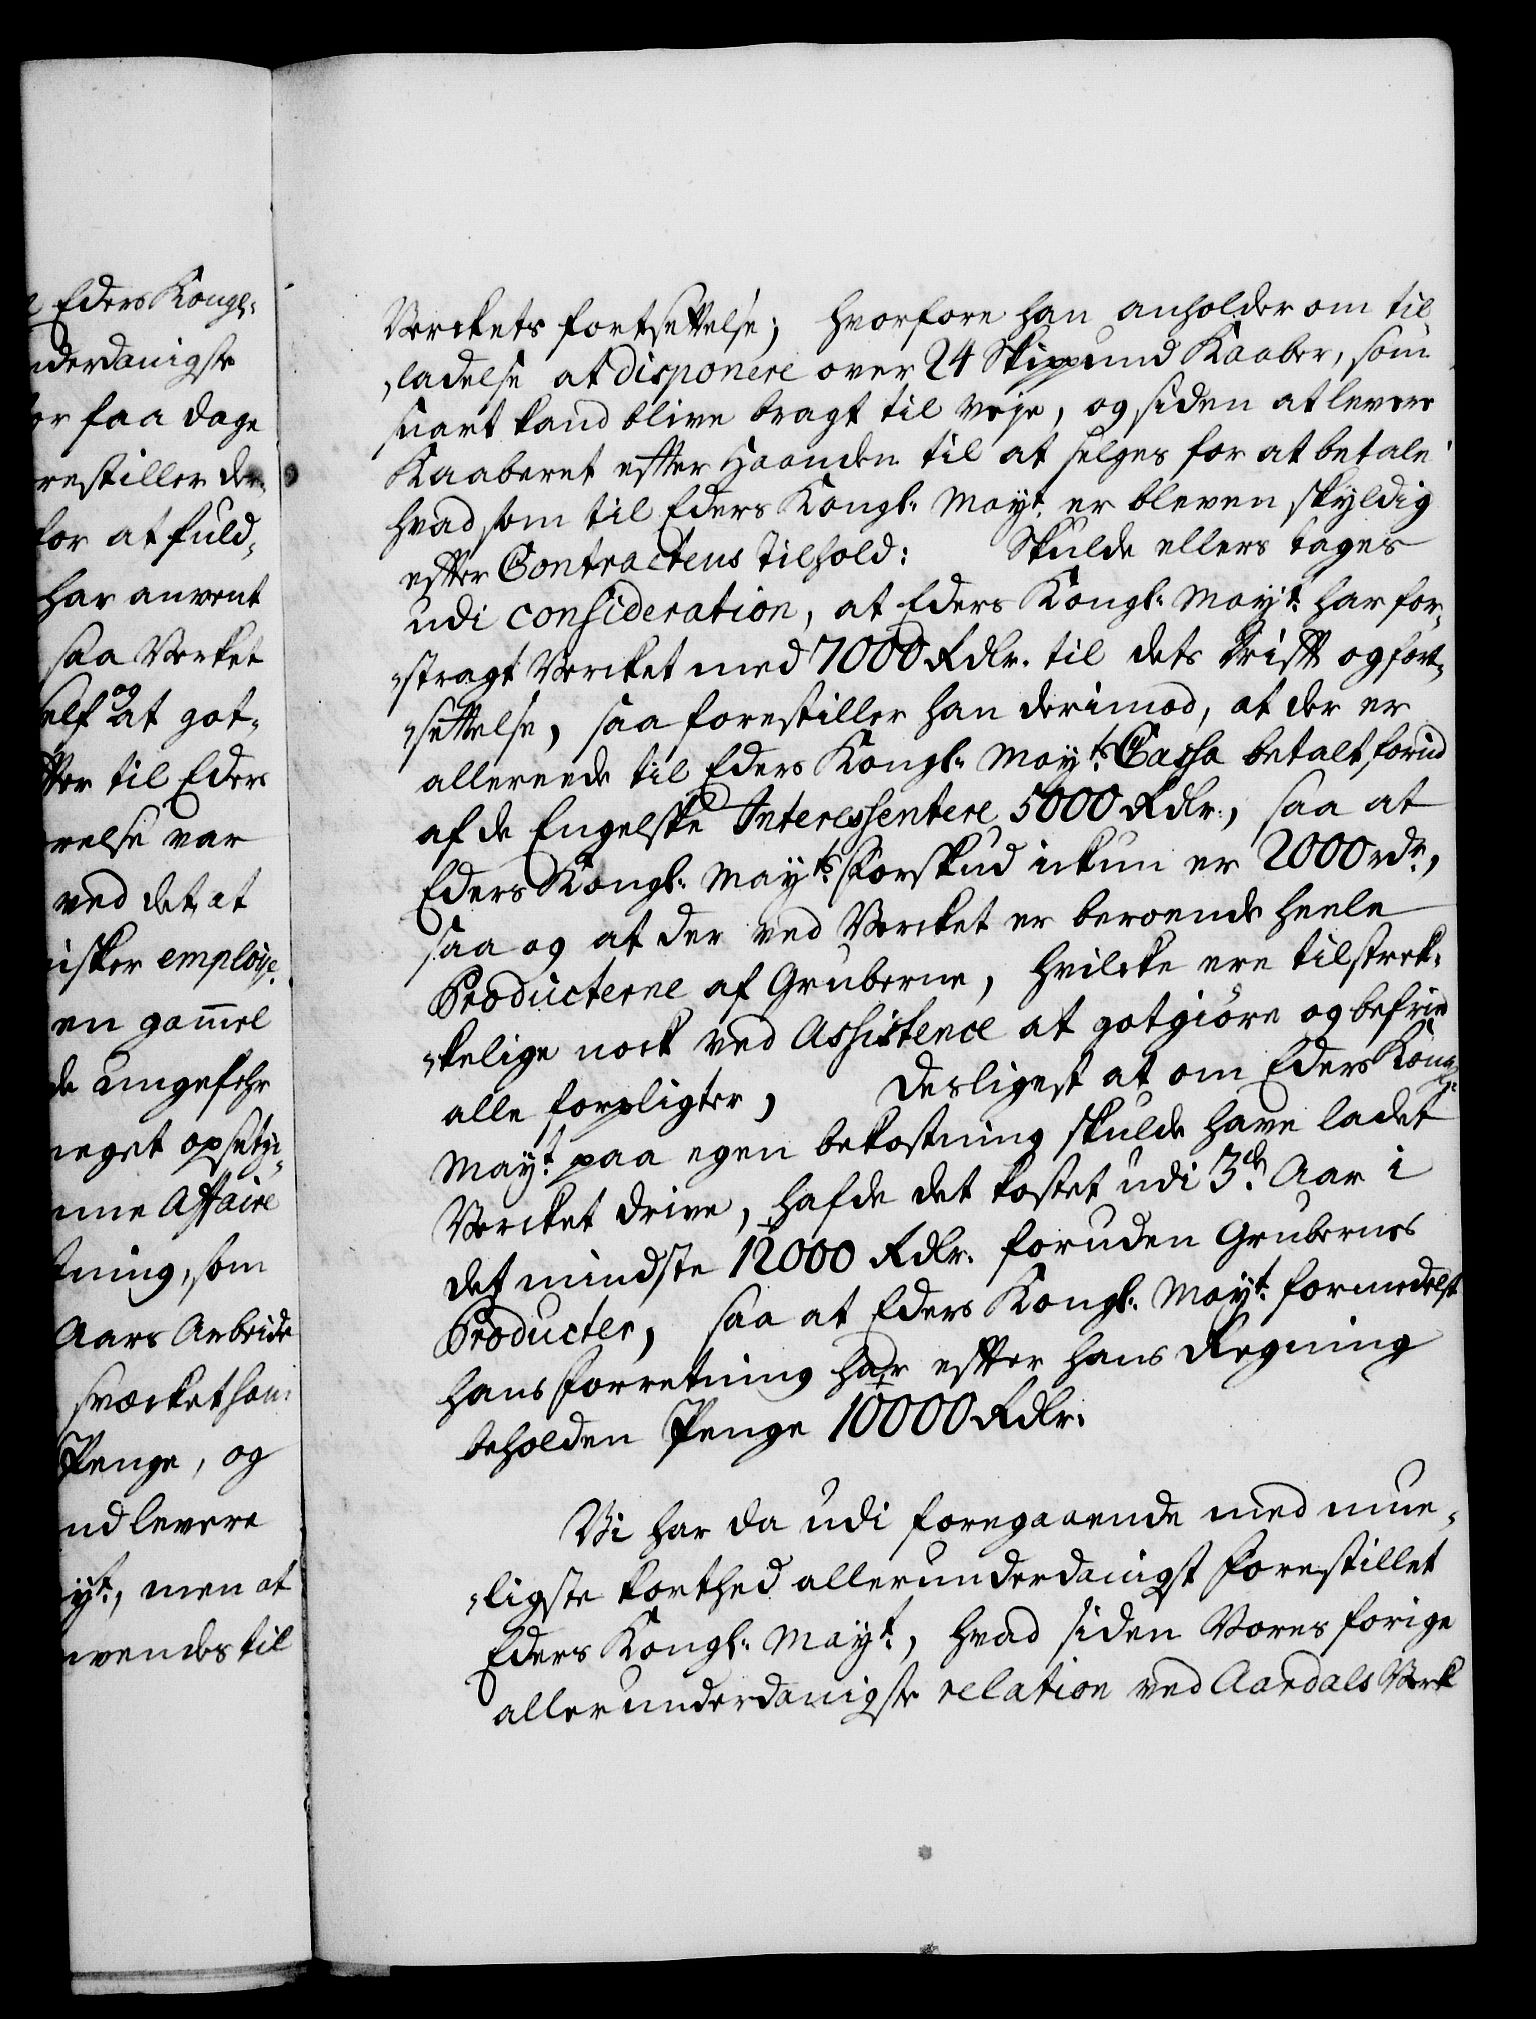 e Eders Kongl:
nderdanigste
for faa dage
restiller der,
for at fuld„
har anvent
saa Verket
self og at got„
tter til Eders
relse var
ved det at
isker employe„
en gammel
de ungefehr
meget opsetzi„
nne Affaire
tning, som
Aars Arbeide
svæcket ham
Penge, og
nd levere
yt, men at
nvendes til
Verckets fortsettelse; hvorfore han anholder om til„
„ladelse at disponere over 24 Skippund Kaaber, som
snart kand blive bragt til veje, og siden at levere
Kaaberet efter Haanden til at selges for at betale
hvad som til Eders Kongl: Mayt. er bleven skyldig
efter Contractens Tilhold: Skulde ellers tages
udi consideration, at Eders Kongl: Mayt. har for„
„stragt Vercket med 7000 Rdlr. til dets Drift og fort„
„settelse, saa forestiller han derimod, at der er
allereede til Eders Kongl: Mayts. Cassa betalt forud
af de Engelske Interessentere 5000 Rdlr., saa at
Eders Kongl: Mayts. Forskud ickun er 2000 rdr,
saa og at der ved Vercket er beroende heele
Producterne af Gruberne, hvilcke ere tilstreck„
„kelige nock ved Assistence at gotgiöre og befrie
alle forpligter, Desligest at om Eders Kongl:
Mayt. paa egen bekostning skulde have ladet
Vercket drive, hafde det kostet udi 3de Aar i
det mindste 12000 Rdlr. foruden Grubernes
Producter, saa at Eders Kongl: Mayt. formedelst
hans forretning har efter hans Regning
beholden Penge 10000 Rdlr.
Vi har da udi foregaaende med mue„
„ligste korthed allerunderdanigst forestillet
Eders Kongl: Mayt., hvad siden Vores forige
allerunderdanigste relation ved Aardals Verk